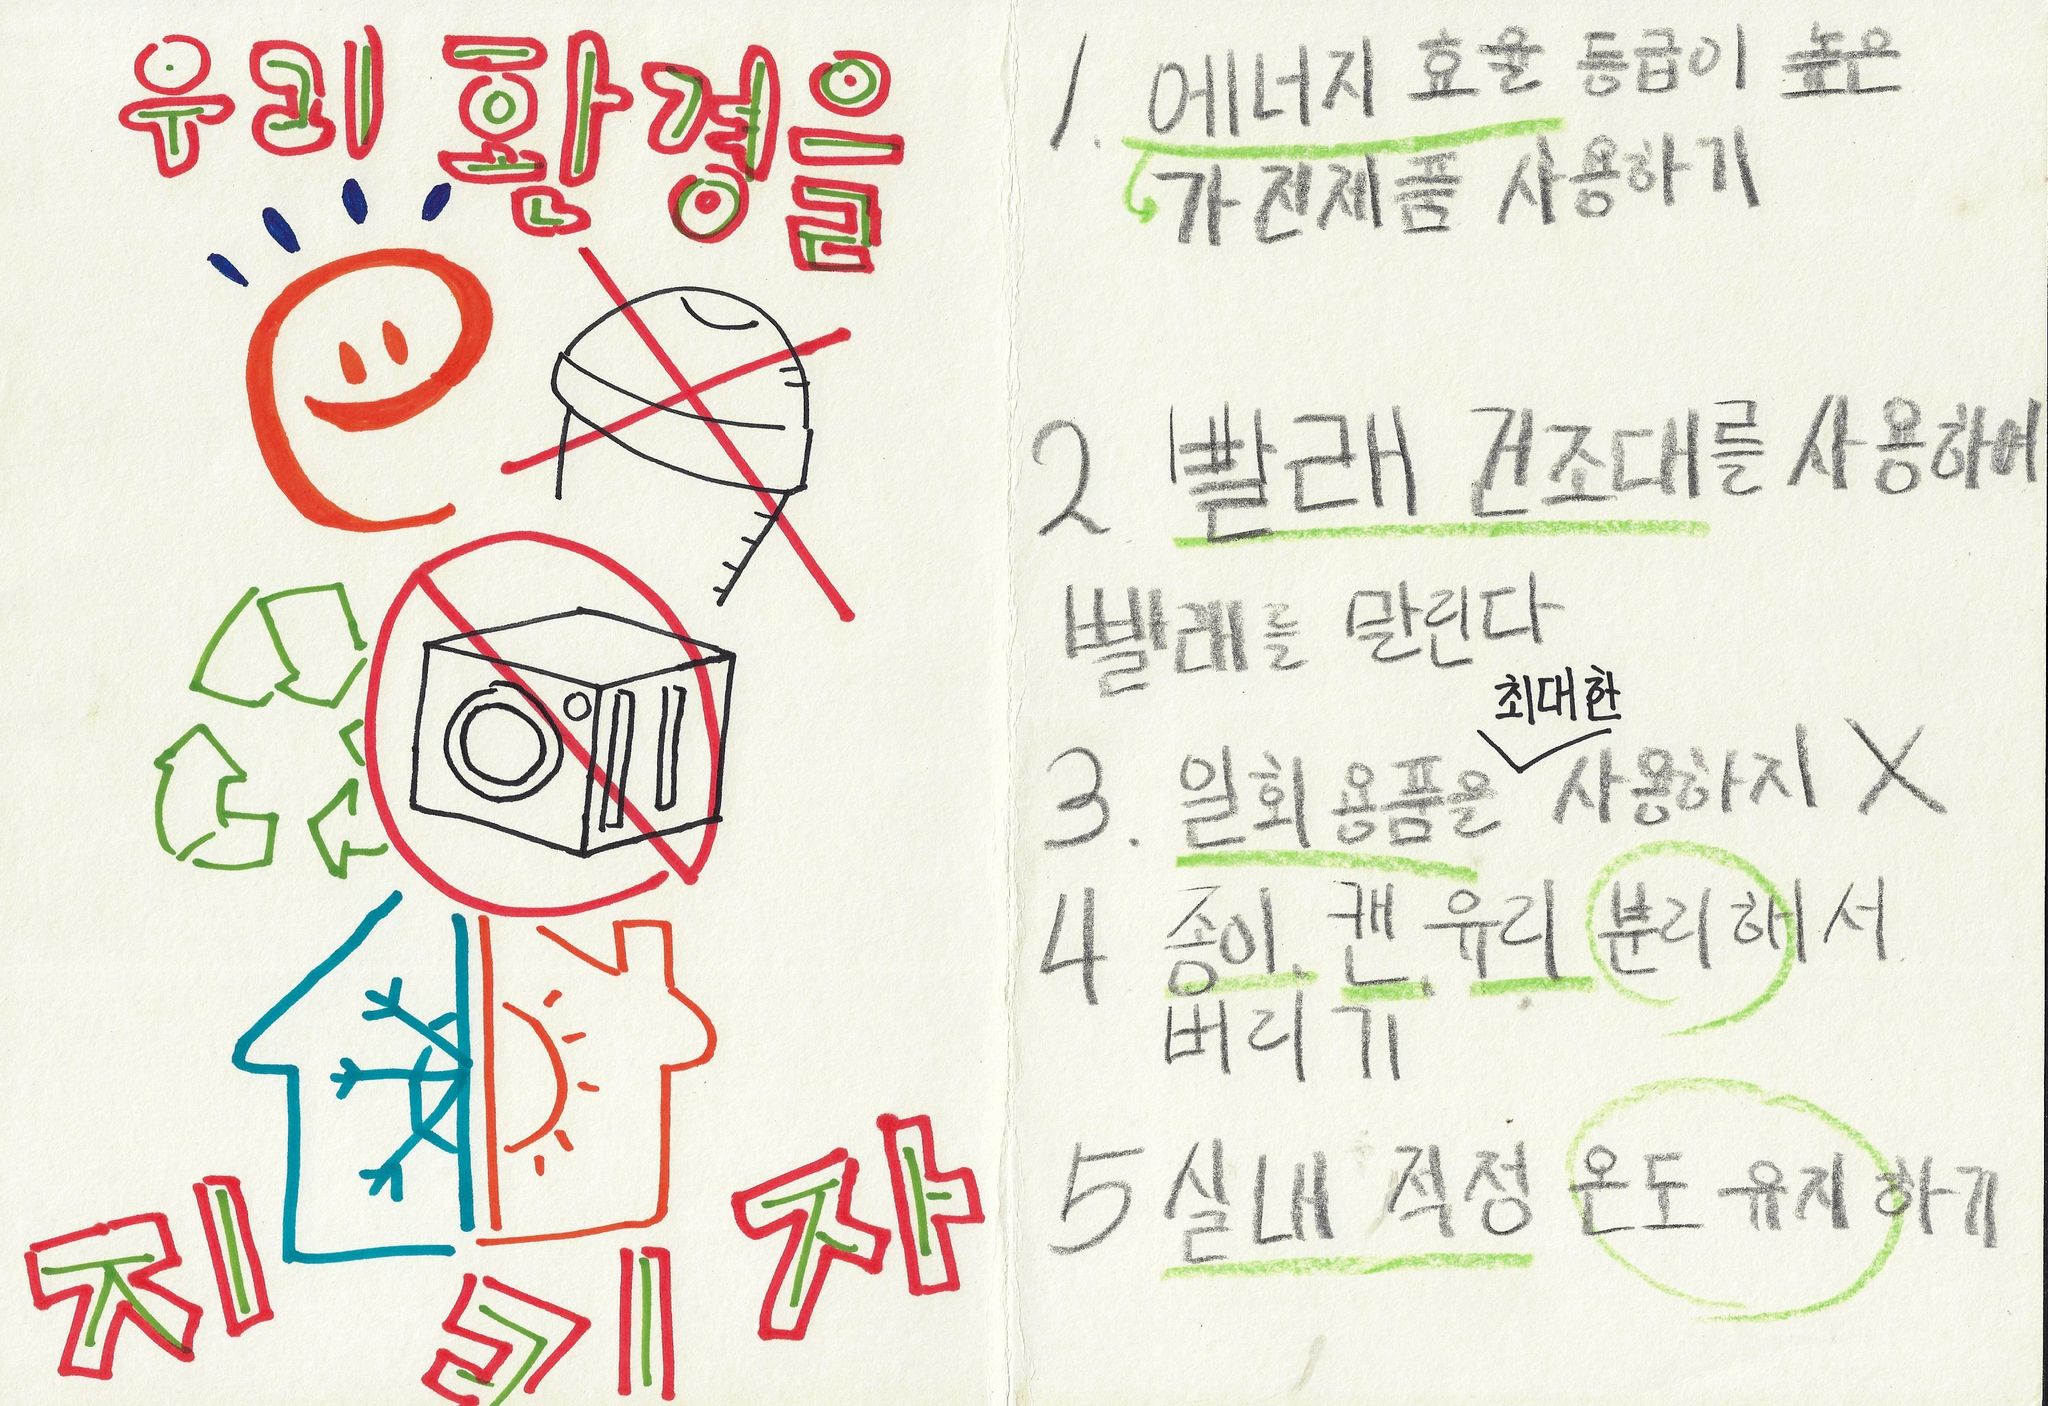 우리 환경을
지키자
1. 에너지 효율 등급이 높은
가전제품 사용하기
2 빨래 건조대를 사용하여
빨래를 말린다
최대한
3. 일회용품을 사용하지 X
4 종이, 캔, 유리 분리해서
버리기
5 실내 적정 온도 유지하기